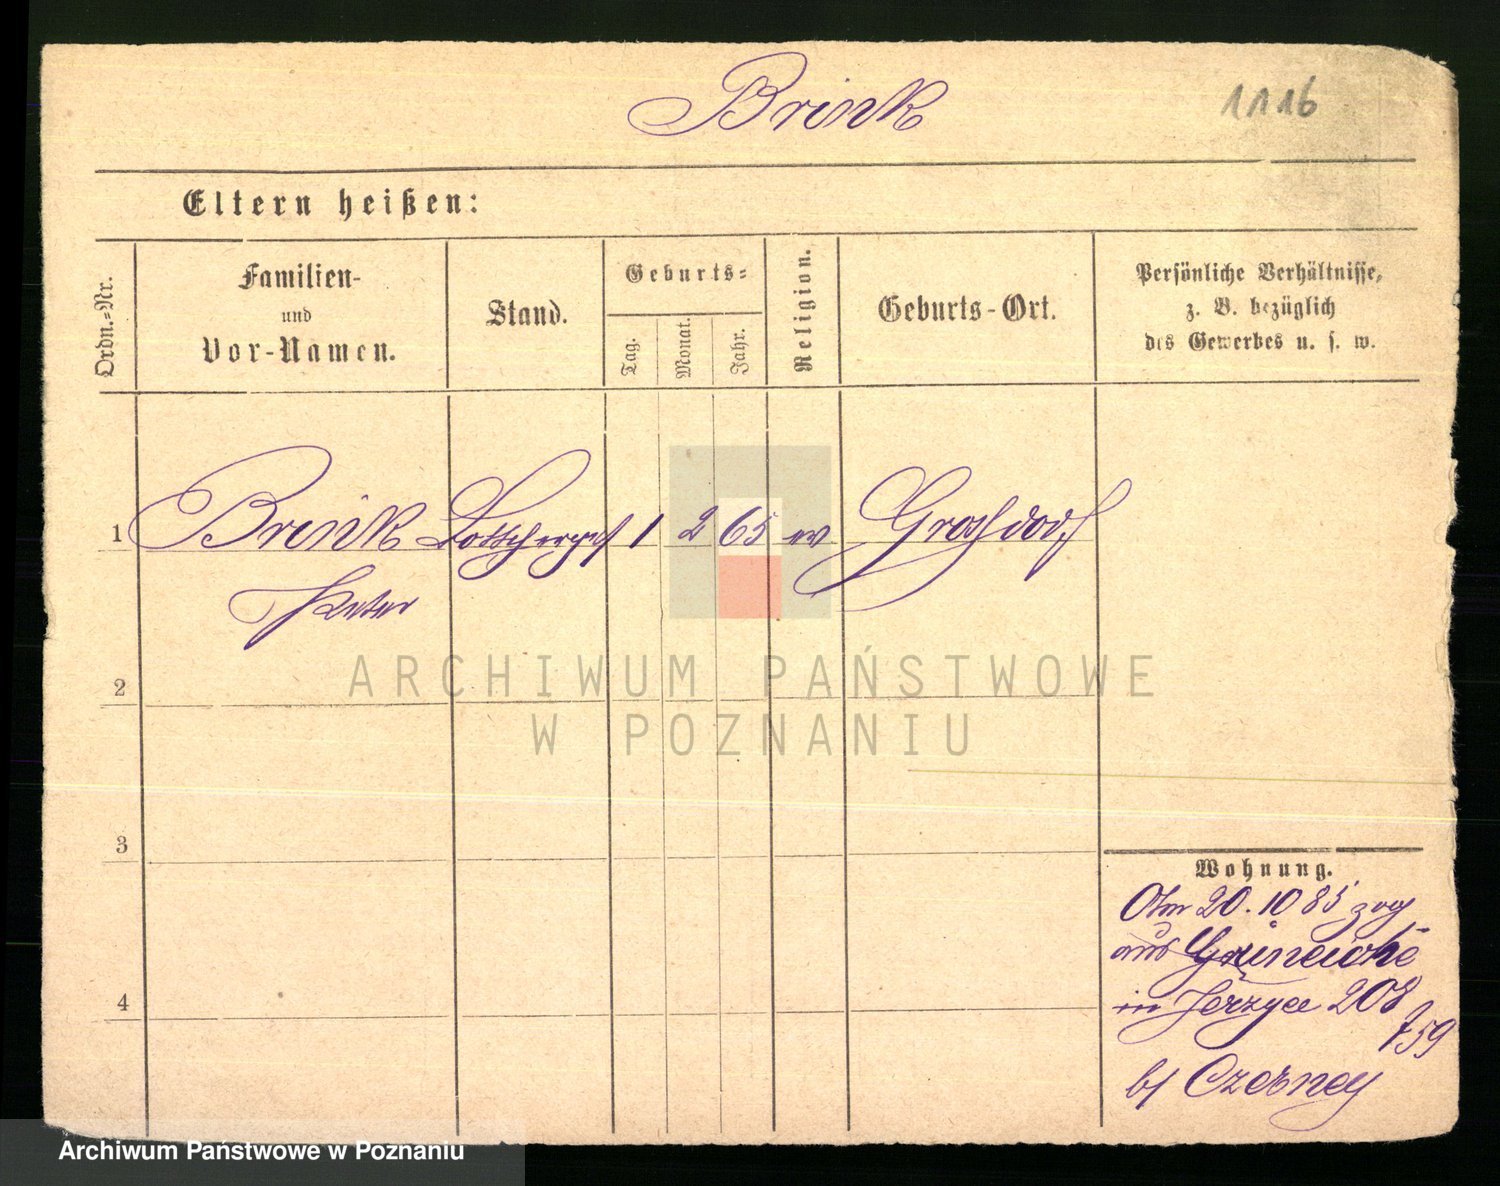 Brink
1116
Eltern heißen:
Ordn.-Nr.
Familien-
und
Vor-Namen.
Stand.
Geburts-
Tag.
Monat.
Jahr.
Religion.
Geburts-Ort.
Persönliche Verhältnisse,
z. B. bezüglich
des Gewerbes u. s. w.
1 Brink 1 2 65 ev Grosdorf
Peter
ARCHIWUM PAŃSTWOWE
W POZNANIU
2
3
4
Wohnung.
20.10 85 zog
aus Grüneiche
in Jerzyce 208
759
b/ Czerney
Archiwum Państwowe w Poznaniu